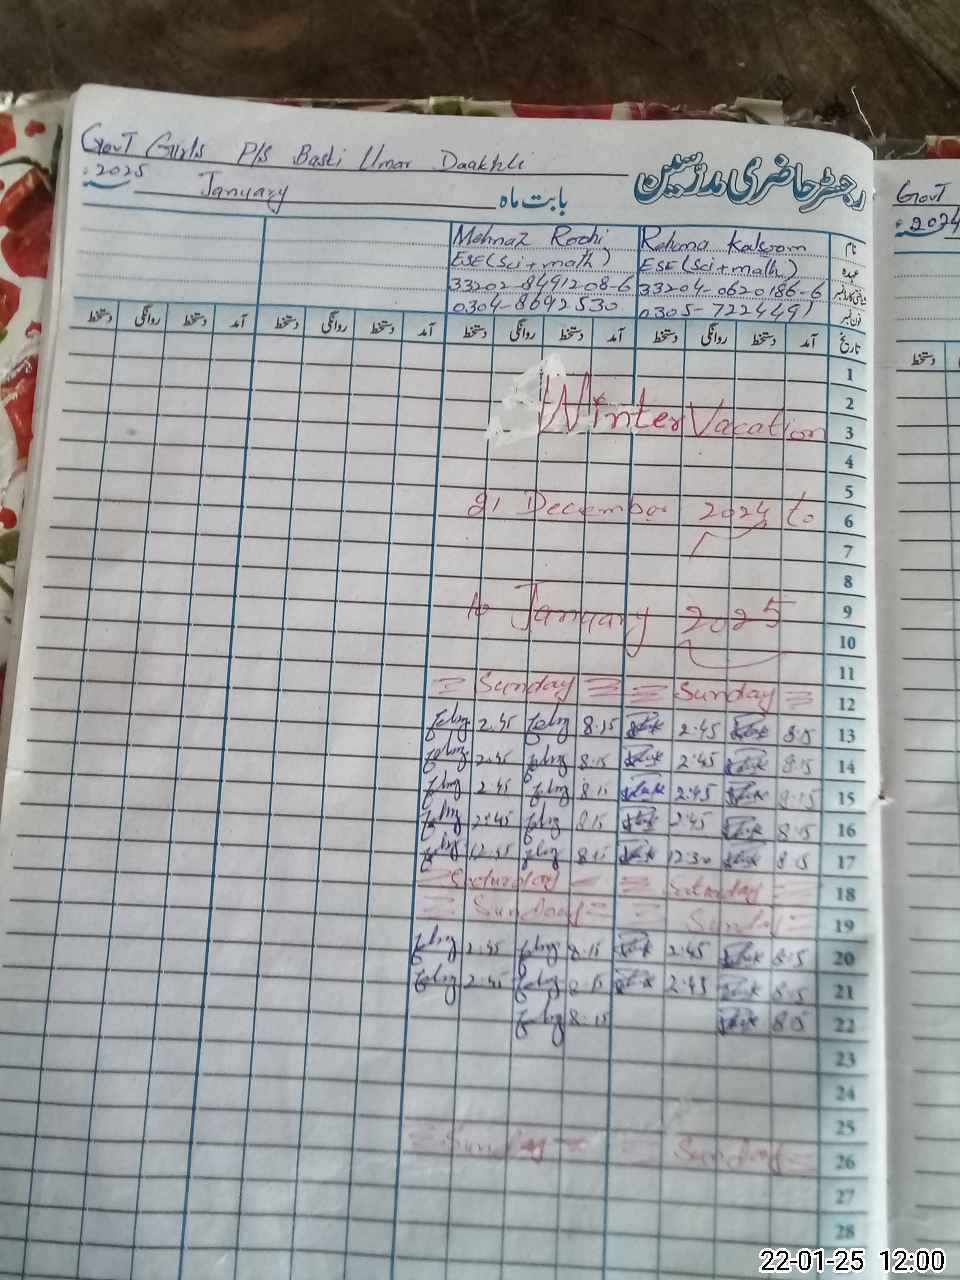 Govt Girls P/S Basti Umar Daakhli
رجسٹر حاضری مدرسین
2025 January بابت ماہ
Govt
2024
نام Rehma Kalsoom Mehnaz Rochi
عہدہ ESE (Sci+math) ESE (Sci+math)
33204-0620186-6 33202-8491208-6
فون نمبر 0305-7224491 0304-8692530
تاریخ آمد دستخط روانگی دستخط آمد دستخط روانگی دستخط آمد دستخط روانگی دستخط آمد دستخط روانگی دستخط
1
2
Winter Vacation
3
4
5
21 December 2024 to
6
7
8
10 January 2025
9
10
11
12 Sunday Sunday
13 8:15 2:45 8:15 2:45
14 8:15 2:45 8:15 2:45
15 8:15 2:45 8:15 2:45
16 8:15 2:45 8:15 2:45
17 8:15 12:30 8:15
18 Saturday Saturday
19 Sunday Sunday
20 8:15 2:45 8:15 2:45
21 8:15 2:45 8:15 2:45
22 8:15 8:15
23
24
25
26 Sunday Sunday
27
28
22-01-25 12:00